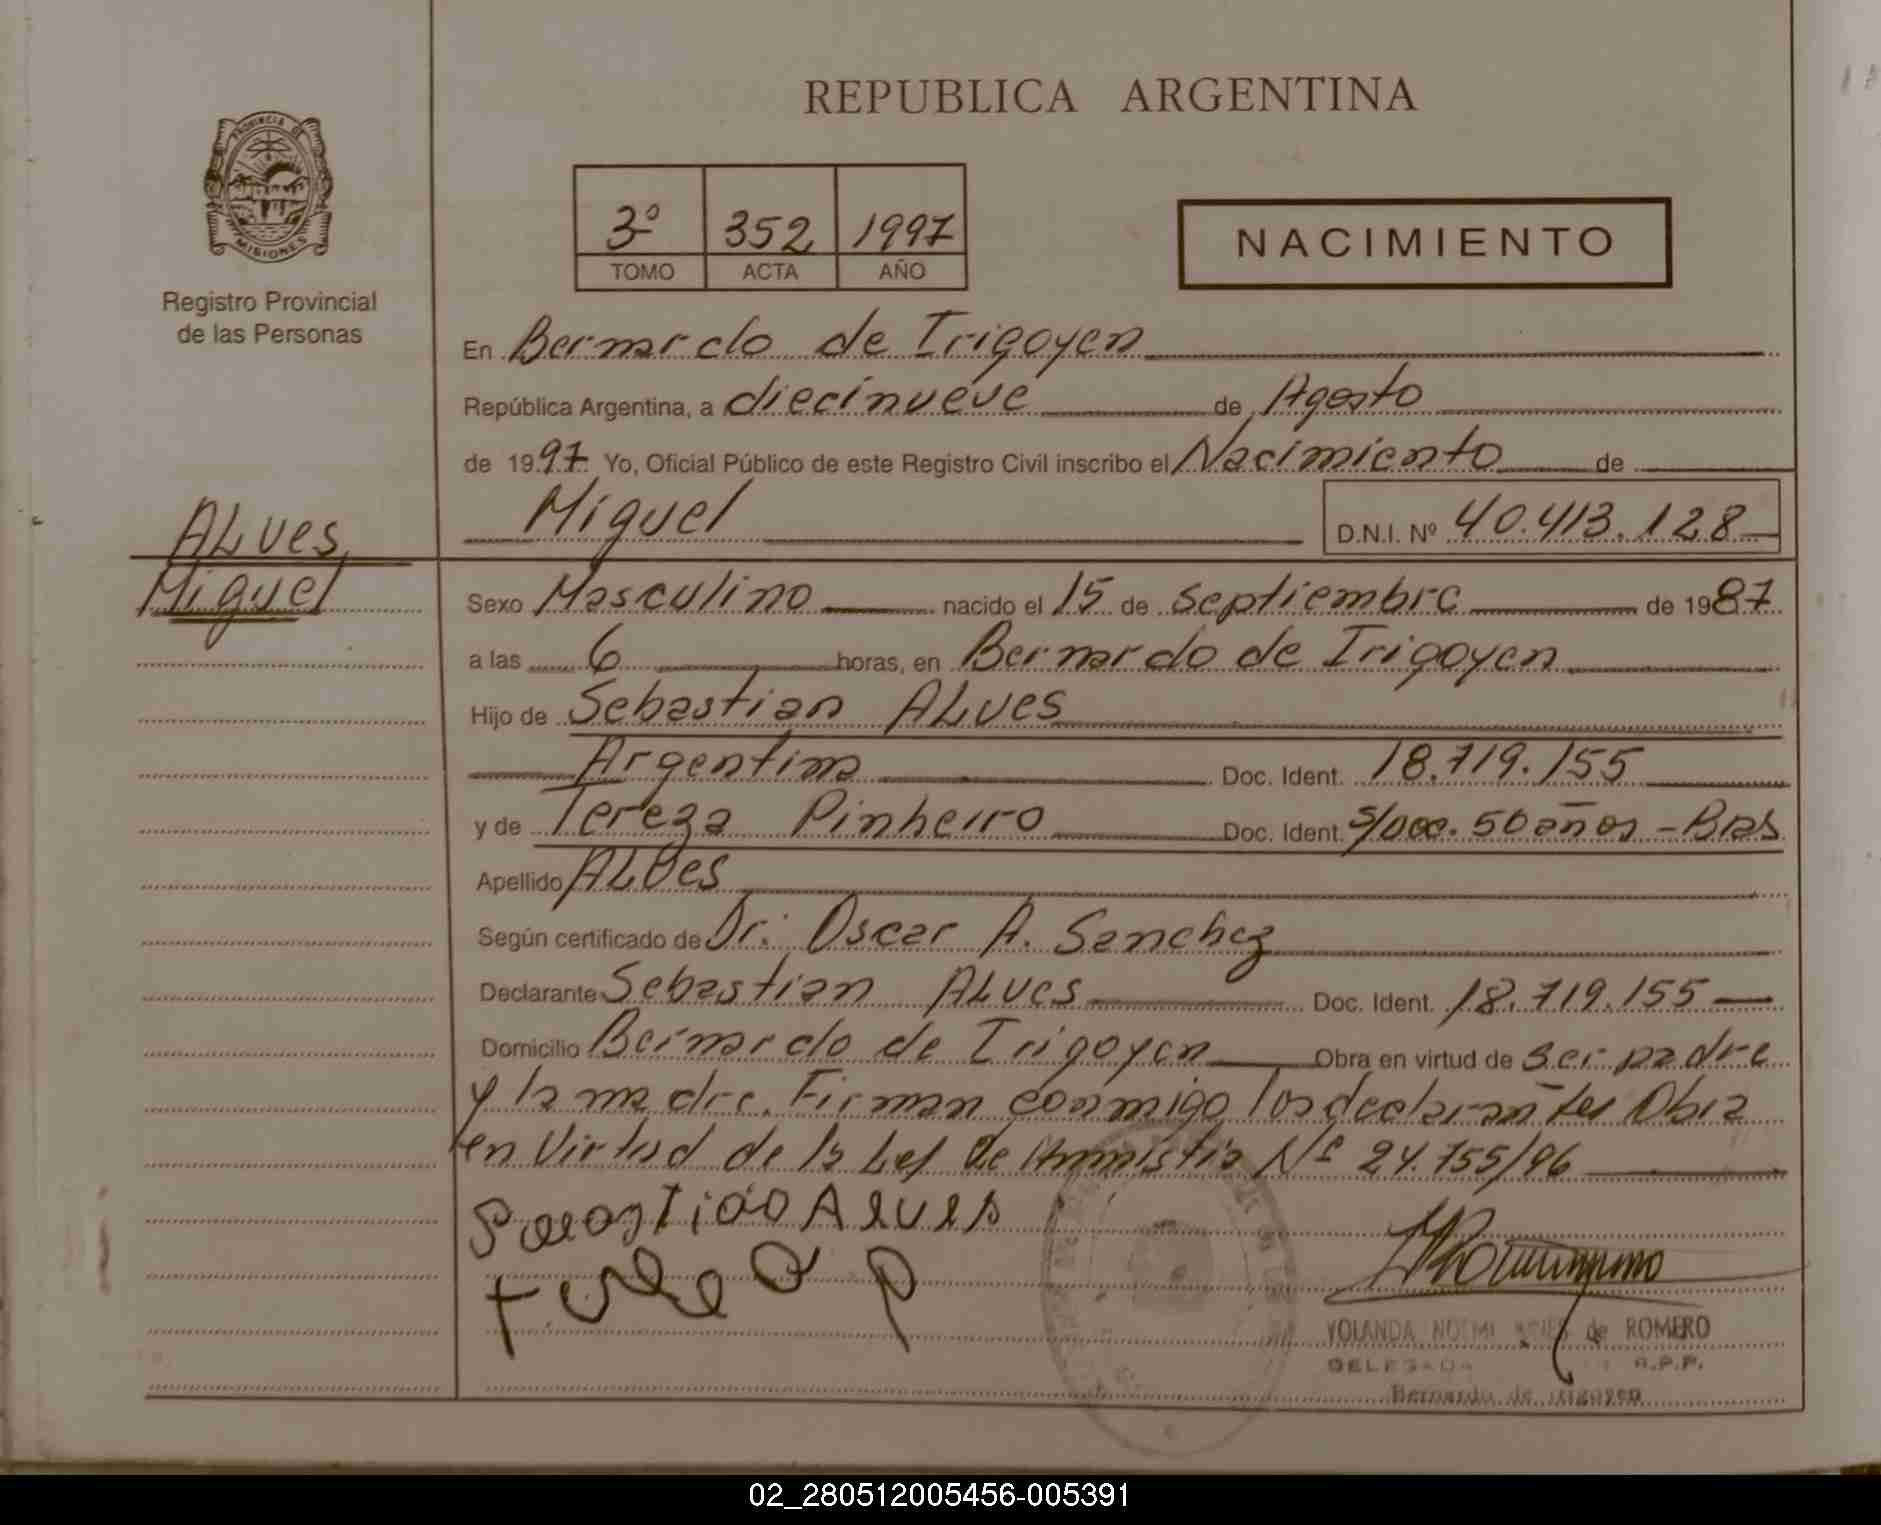 REPUBLICA ARGENTINA
PROVINCIA DE
MISIONES
Registro Provincial
de las Personas
3º 352 1997
TOMO ACTA AÑO
NACIMIENTO
En Bernardo de Irigoyen
República Argentina, a diecinueve de Agosto
de 1997 Yo, Oficial Público de este Registro Civil inscribo el Nacimiento de
Miguel D.N.I. Nº 40.413.128
ALves
Miguel
Sexo Masculino nacido el 15 de septiembre de 1987
a las 6 horas, en Bernardo de Irigoyen
Hijo de Sebastian ALves
Argentina Doc. Ident. 18.719.155
y de Tereza Pinheiro Doc. Ident. s/Doc. 50 años - Bras
Apellido ALves
Según certificado de Dr. Oscar A. Sanchez
Declarante Sebastian ALves Doc. Ident. 18.719.155
Domicilio Bernardo de Irigoyen Obra en virtud de ser padre
y la madre. Firman conmigo los declarantes Obra
en Virtud de la Ley de Amnistia Nº 24.755/96
YOLANDA NOEMI de ROMERO
DELEGADA R.P.P.
Bernardo de Irigoyen
02_280512005456-005391